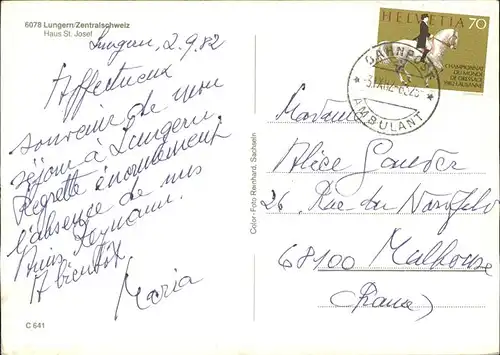 6078 Lungern/Zentralschweiz
Haus St. Josef
Lungern, 2.9.82
Affectueux
souvenir de mon
séjour à Lungern
Regrette énormément
l'absence de nos
Amis Reymann.
A bientôt
Maria
C 641
Color-Foto Reinhard, Sachseln
HELVETIA 70
CHAMPIONNAT
DU MONDE
DE DRESSAGE
1982 LAUSANNE
BAHNPOST
AMBULANT
Madame
Alice
26, Rue du
68100 Mulhouse
(France)